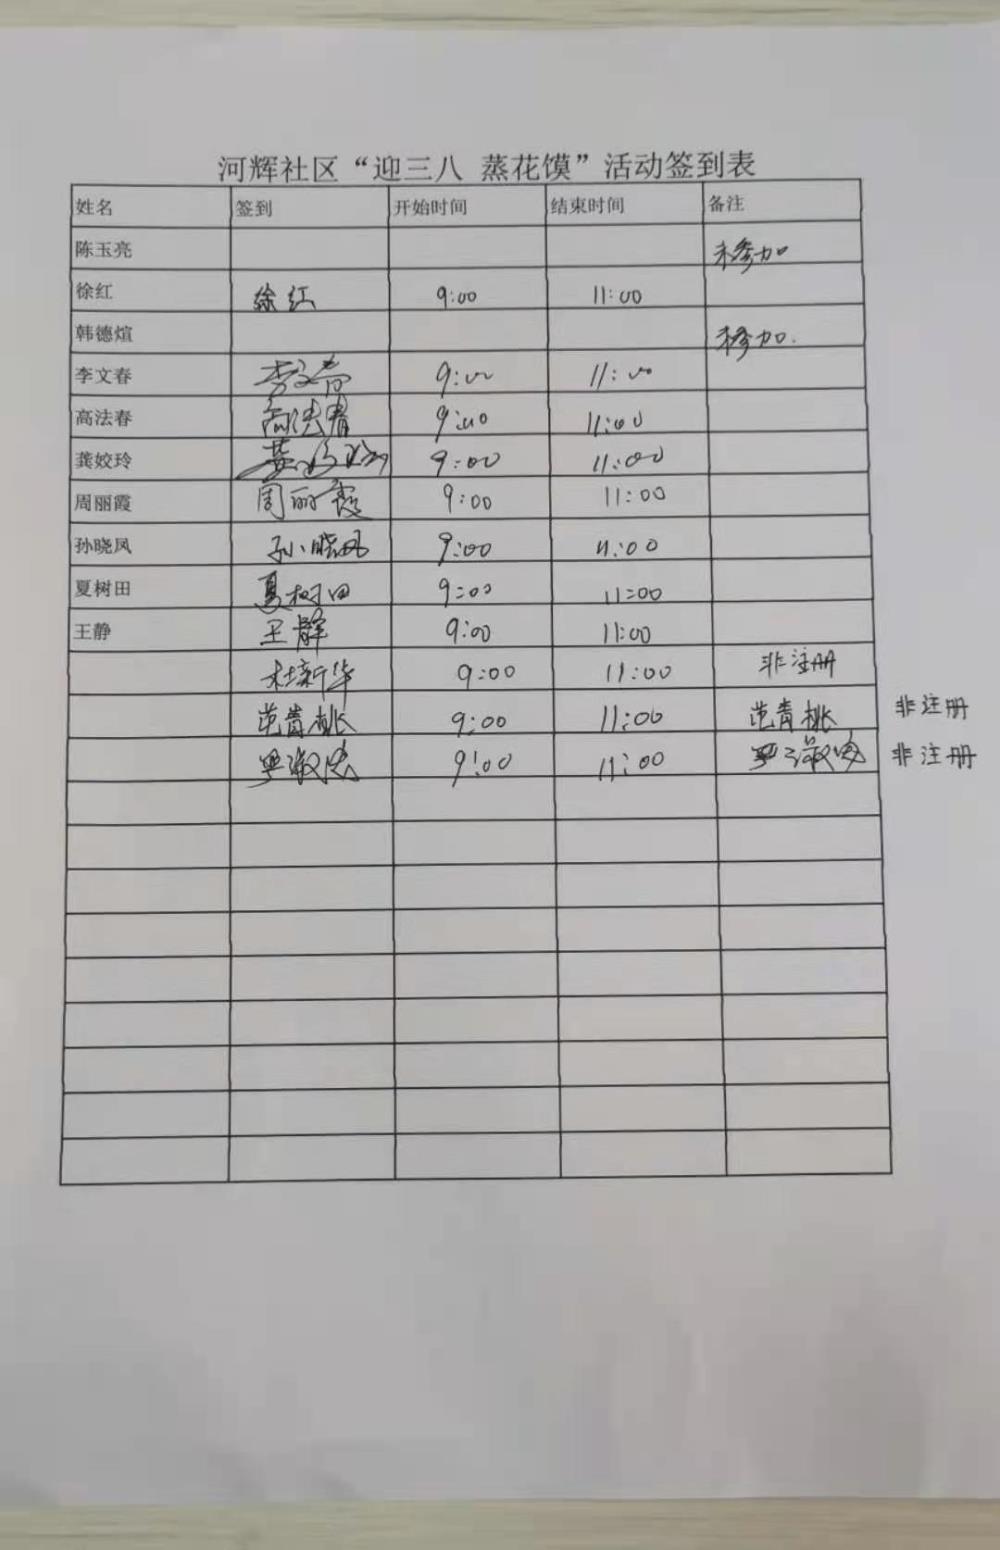 河辉社区“迎三八 蒸花馍”活动签到表
姓名 签到 开始时间 结束时间 备注
陈玉亮 未参加
徐红 徐红 9:00 11:00
韩德煊 未参加.
李文春 李文春 9:00 11:00
高法春 高法春 9:00 11:00
龚姣玲 龚姣玲 9:00 11:00
周丽霞 周丽霞 9:00 11:00
孙晓凤 孙晓凤 9:00 11:00
夏树田 夏树田 9:00 11:00
王静 王静 9:00 11:00
杜新华 9:00 11:00 非注册
范青桃 9:00 11:00 范青桃 非注册
9:00 11:00 非注册